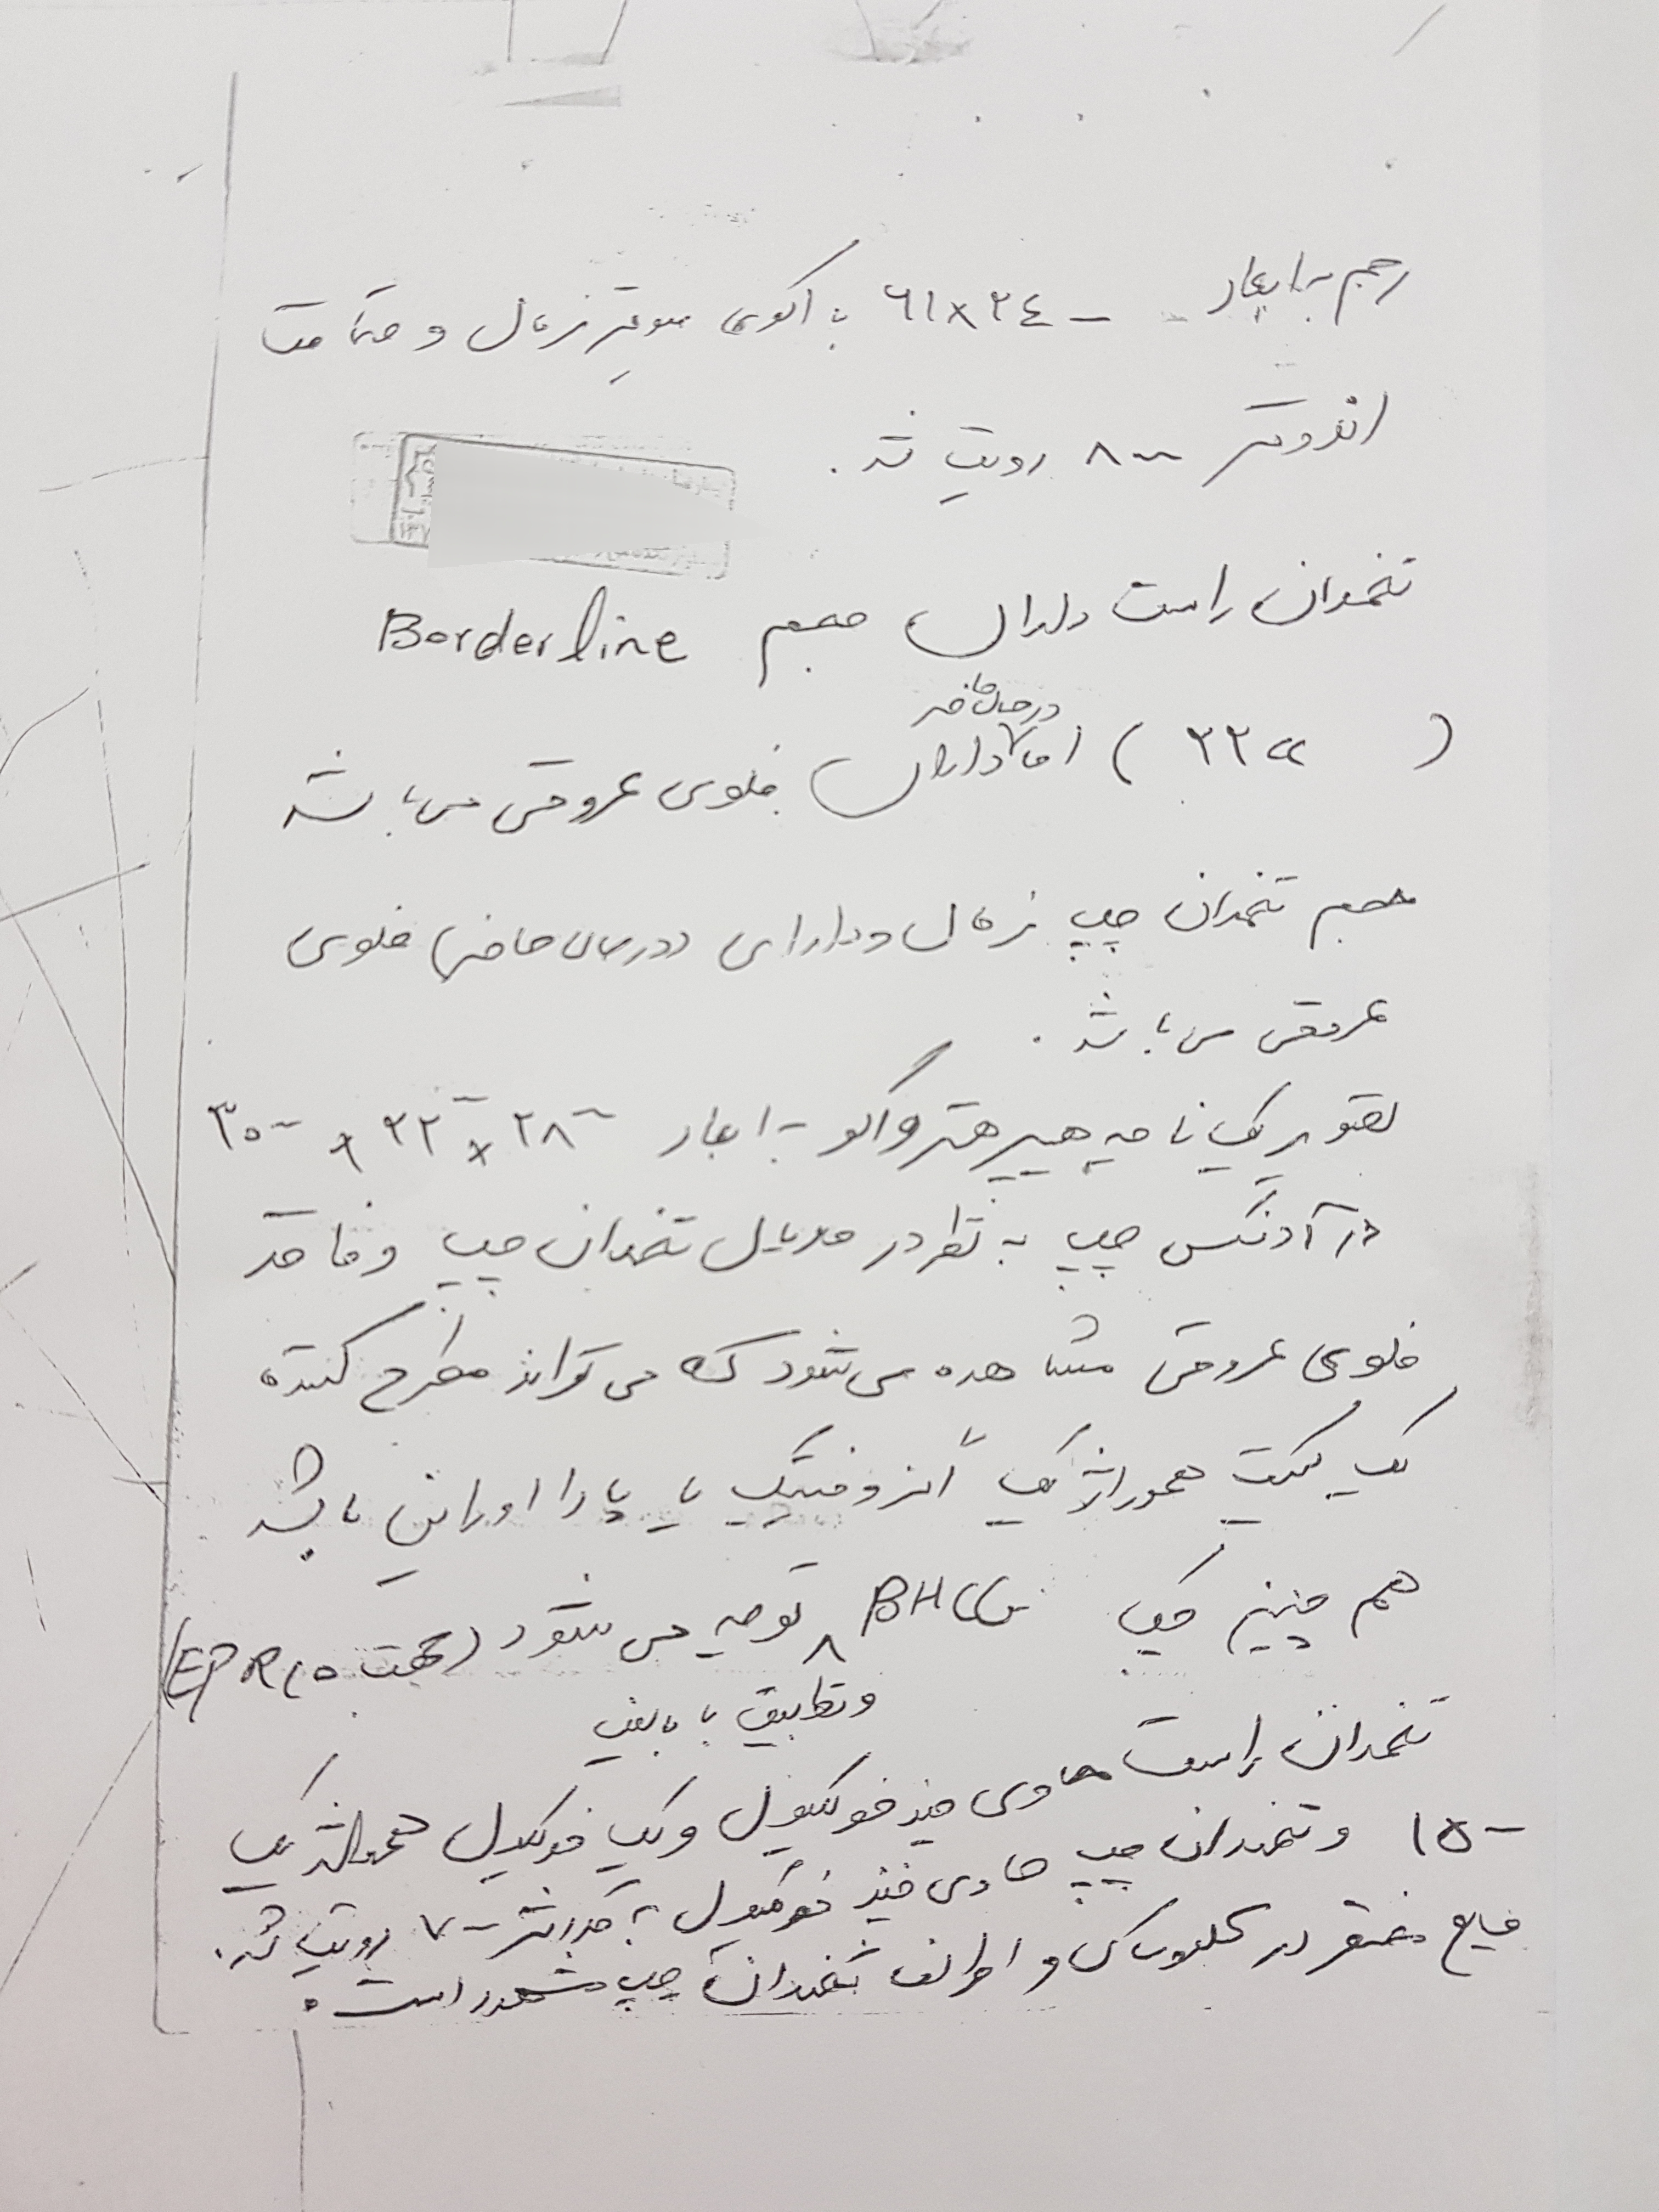 رحم به ابعاد ۶۱×۳٤ mm با اکوی میومتر نرمال و ضخامت
اندومتر ۸ mm رویت شد.
تخمدان راست دارای حجم Borderline
( ۲۲ cc ) اما در حال حاضر دارای فلوی عروقی می باشد
حجم تخمدان چپ نرمال و دارای (در حال حاضر) فلوی
عروقی می باشد.
تصویر یک ناحیه هیپر هترواکو به ابعاد ۲۸ mm × ۲۲ mm × ۳۰ mm
در آدنکس چپ به نظر در مدیال تخمدان چپ و فاقد
فلوی عروقی مشاهده می شود که می تواند مطرح کننده
یک کیست هموراژیک اگزوفیتیک یا پارا اوارین باشد
هم چنین چک BHCG توصیه می شود (جهت R/O EP)
و تطبیق با بالین
تخمدان راست حاوی چند فولیکول و یک فولیکول هموراژیک
۱۵ mm و تخمدان چپ حاوی چند فولیکول به حداکثر ۷ mm رویت شد.
مایع مختصر در کلدوساک و اطراف تخمدان چپ مشهود است.